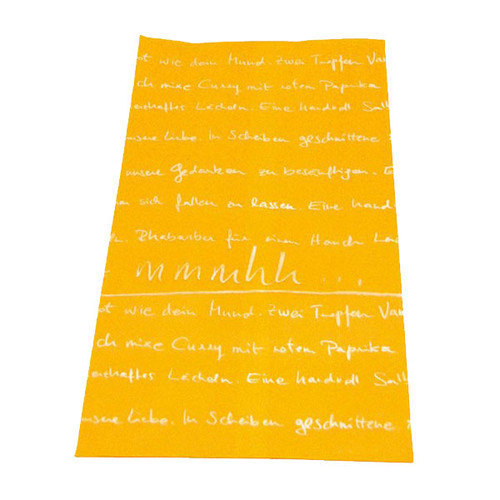 ot wie dein Mund. Zwei Tropfen Van
ch mixe Curry mit rotem Paprika
erhaftes Lächeln. Eine handvoll Salb
unsere Liebe. In Scheiben geschnittene
unsere Gedanken zu besänftigen. E
sich fallen zu lassen. Eine hand
n. Rhabarber für einen Hauch Lei
mmmhh...
ot wie dein Mund. Zwei Tropfen Van
ch mixe Curry mit rotem Paprika
erhaftes Lächeln. Eine handvoll Salb
unsere Liebe. In Scheiben geschnittene